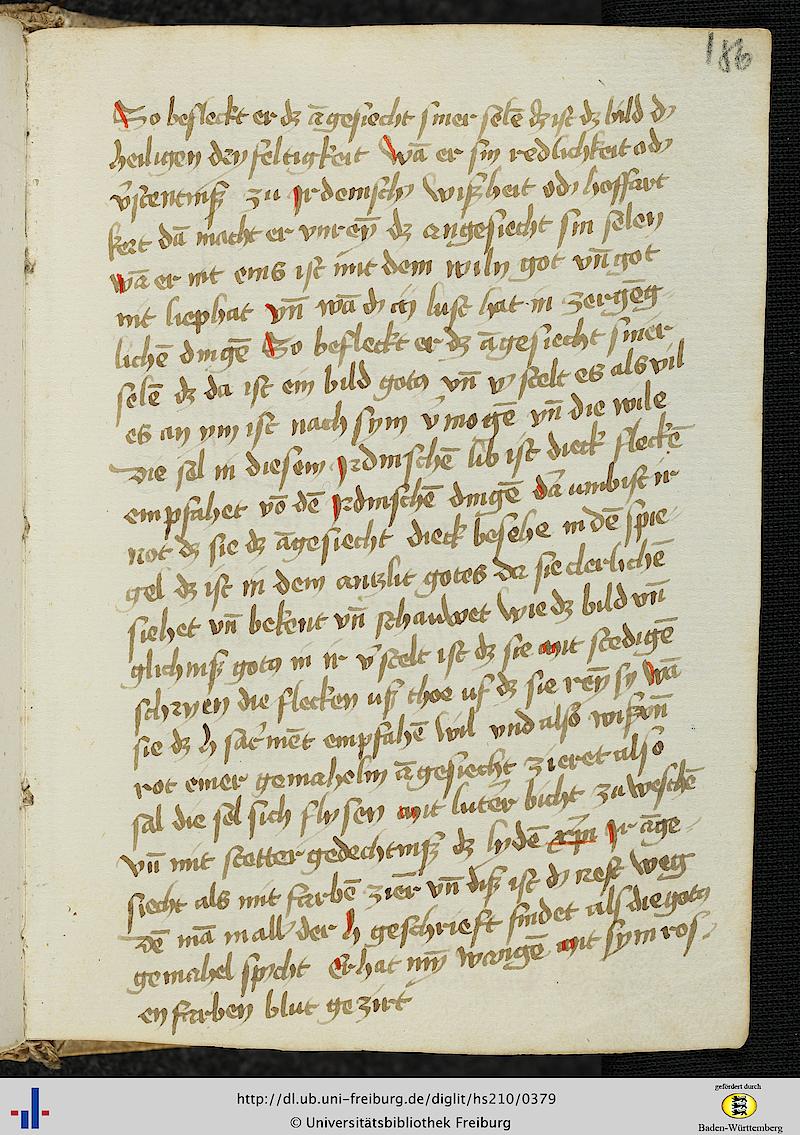 186
So befleckt er dz āgesiecht siner selē dz ist dz bild dˀ
heiligen dryfeltigkeit Wā er sin redlichkeit odˀ
v̄stentniß zu Jrdemschˀ wißheit odˀ hoffart
kert dā macht er vnreȳ dz angesiecht sin selen
Wā er nit eins ist mit dem wiln got vn̄ got
nit liephat vn̄ wā dˀ lust hat in zergēg-
lichē dingē So befleckt er dz āgesiecht siner
selē dz da ist ein bild gotˀ vn̄ v̄stelt es als vil
es an ym ist nach sym v̄mogē vn̄ die wile
die sel in diesem Jrdinschē lib ist dieck fleckē
empfahet vō dē Jrdinschē dingē dā umb ist ir
not dz sie dz āgesiecht dieck besehe in dē spie-
gel dz ist in dem antzlit gotes da sie clerlichē
siehet vn̄ bekent vn̄ schauwet wie dz bild vn̄
glichniß gotˀ in ir v̄stelt ist dz sie mit stedigē
schryen die flecken uß thoe uf dz sie reȳ sy Wā
sie dz h sac̄mēt empfahē wil vnd also wiß vn̄
rot einer gemaheln āgesiecht zieret also
sal die sel sich flysen mit lut̄er bicht zu weschē
vn̄ mit stetter gedechtniß dz lydē xp̄i Jr āge-
siecht als mit farbē zier̄ vn̄ diß ist dˀ nest weg
dē mā in allˀ der h geschrieft findet als die gotˀ
gemahel spricht Er hat mȳ wangē mit sym ros-
en farben blut gezirt
http://dl.ub.uni-freiburg.de/diglit/hs210/0379
© Universitätsbibliothek Freiburg
gefördert durch
Baden-Württemberg